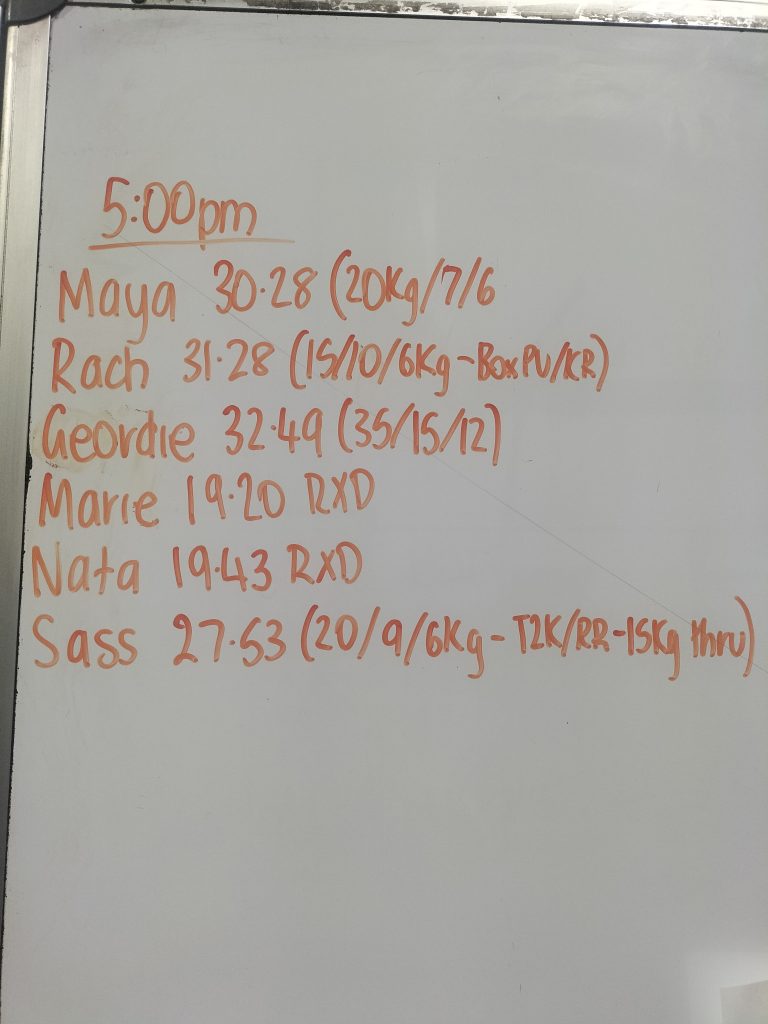 5:00pm
Maya 30.28 (20Kg/7/6
Rach 31.28 (15/10/6Kg-Box PU/KR)
Geordie 32.49 (35/15/12)
Marie 19.20 RXD
Nata 19.43 RXD
Sass 27.53 (20/9/6Kg-T2K/RR-15Kg thru)